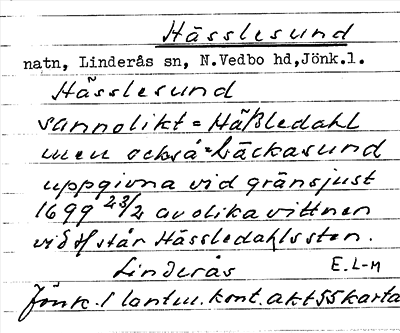 Hässlesund
natn, Linderås sn, N.Vedbo hd,Jönk.l.
Hässlesund
sannolikt = Häßledahl
men också = Läckasund
uppgivna vid gränsjust
1699 23/2 av olika vittnen
vid står Hässledahlssten.
Linderås E.L-M
Jönk. l lantm. kont. akt 55 karta